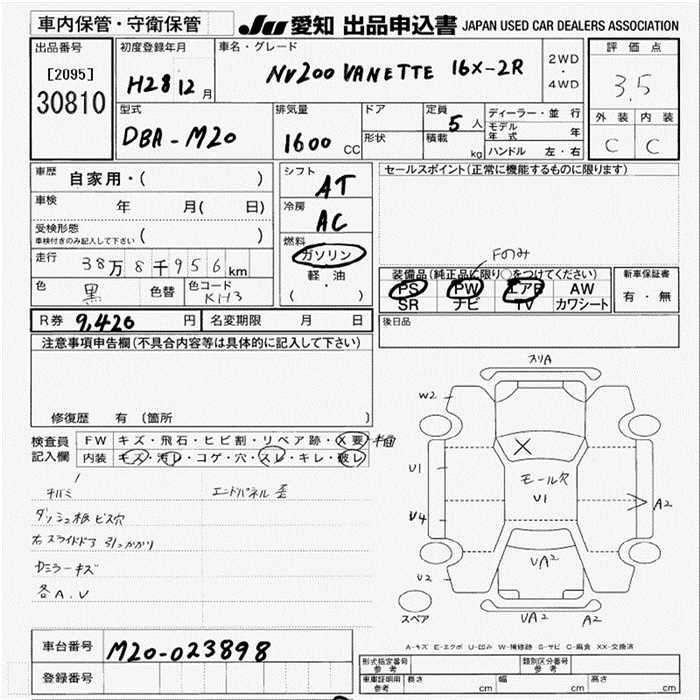 車内保管・守衛保管
JU 愛知 出品申込書 JAPAN USED CAR DEALERS ASSOCIATION
出品番号
[2095]
30810
初度登録年月
H28 12 月
車名・グレード
NV200 VANETTE 16X-2R
2WD
・
4WD
評価点
3.5
外装 内装
C C
型式
DBA-M20
排気量
1600 CC
ドア
形状
定員 5 人
積載 kg
ディーラー・並行
モデル年式 年
ハンドル 左・右
車歴 自家用・( )
車検 年 月( 日)
受検形態
車検付きのみ記入して下さい ( )
走行 38万8千956km
色 黒 色替 色コード KH3
シフト
AT
冷房
AC
燃料
ガソリン
軽・油
( ・ )
セールスポイント(正常に機能するものに限ります)
Fのみ
装備品(純正品に限り○をつけてください)
PS PW エアB AW
SR ナビ TV カワシート
新車保証書
有・無
R券 9,420 円 名変期限 月 日
後日品
注意事項申告欄(不具合内容等は具体的に記入して下さい)
修復歴 有 〔箇所 〕
検査員
記入欄
FW キズ・飛石・ヒビ割・リペア跡・X要
内装 キズ・汚レ・コゲ・穴・スレ・キレ・破レ
エンドパネル歪
ダッシュ板ビス穴
右スライドドア引っかかり
ミラーキズ
各A.U
スリA
W2
U1
U4
U2
X
モール欠
U1
A2
UA2
スペア
UA2 A2
A-キズ E-エクボ U-凹み W-補修跡 S-サビ C-腐食 XX-交換済
車台番号 M20-023898
登録番号
形式指定番号
参考
類別区分番号
参考
車庫証明用
参考
長さ cm 幅 cm 高さ cm